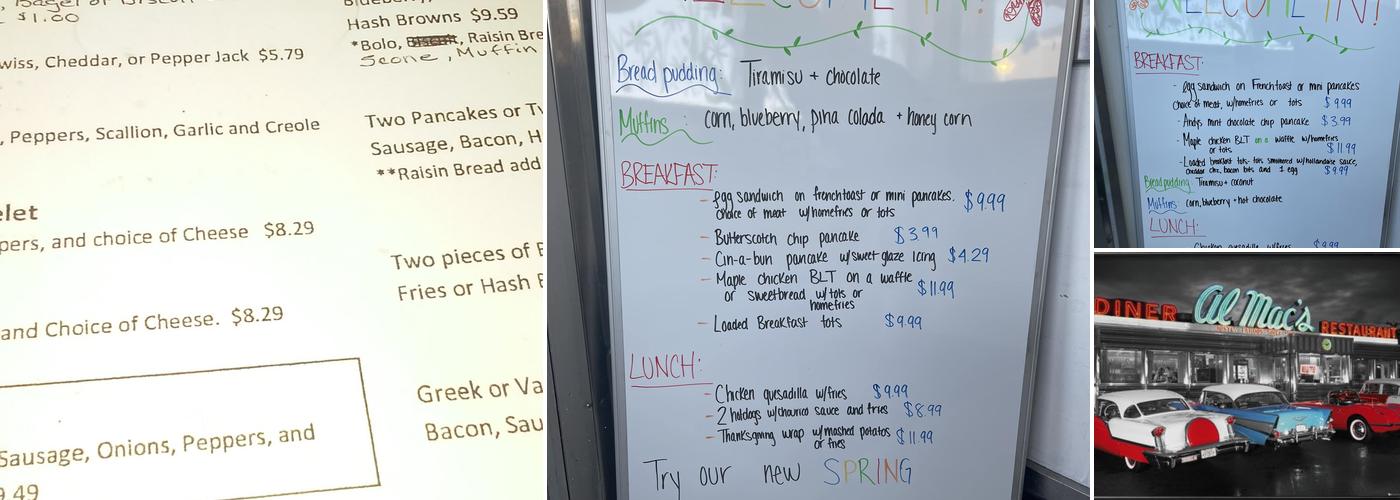 $1.00
wiss, Cheddar, or Pepper Jack $5.79
, Peppers, Scallion, Garlic and Creole
elet
pers, and choice of Cheese $8.29
and Choice of Cheese. $8.29
Sausage, Onions, Peppers, and
9.49
Hash Browns $9.59
*Bolo, , Raisin Bre
Scone, Muffin
Two Pancakes or Tw
Sausage, Bacon, H
**Raisin Bread add
Two pieces of F
Fries or Hash B
Greek or Va
Bacon, Sau
WELCOME IN!
Bread pudding: Tiramisu + chocolate
Muffins: corn, blueberry, pina colada + honey corn
BREAKFAST:
- egg sandwich on frenchtoast or mini pancakes. $9.99
choice of meat w/homefries or tots
- Butterscotch chip pancake $3.99
- Cin-a-bun pancake w/sweet glaze icing $4.29
- Maple chicken BLT on a waffle $11.99
or sweetbread w/tots or
homefries
- Loaded Breakfast tots $9.99
LUNCH:
- Chicken quesadilla w/fries $9.99
- 2 hotdogs w/chourico sauce and fries $8.99
- Thanksgiving wrap w/mashed potatos $11.99
or fries
Try our new SPRING
WELCOME IN!
BREAKFAST:
- egg sandwich on Frenchtoast or mini pancakes
choice of meat, w/homefries or tots $9.99
- Andys mint chocolate chip pancake $3.99
- Maple chicken BLT on a waffle w/homefries
or tots $11.99
- Loaded breakfast tots- tots smothered w/hollandaise sauce,
cheddar chz, bacon bits and 1 egg $9.99
Bread pudding: Tiramisu + coconut
Muffins: corn, blueberry + hot chocolate
LUNCH:
Chicken quesadilla w/fries $9.99
DINER Al Mac's RESTAURANT